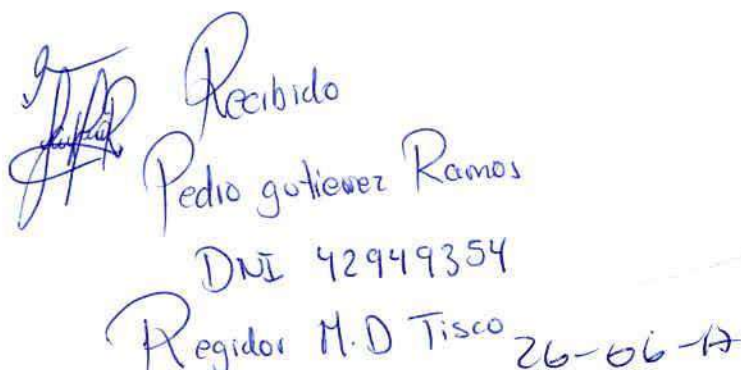 Recibido
Pedro gutierrez Ramos
DNI 42949354
Regidor M.D Tisco 26-06-17